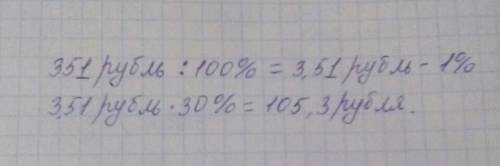 351 рубль : 100% = 3,51 рубль - 1%
3,51 рубль · 30% = 105,3 рубля.